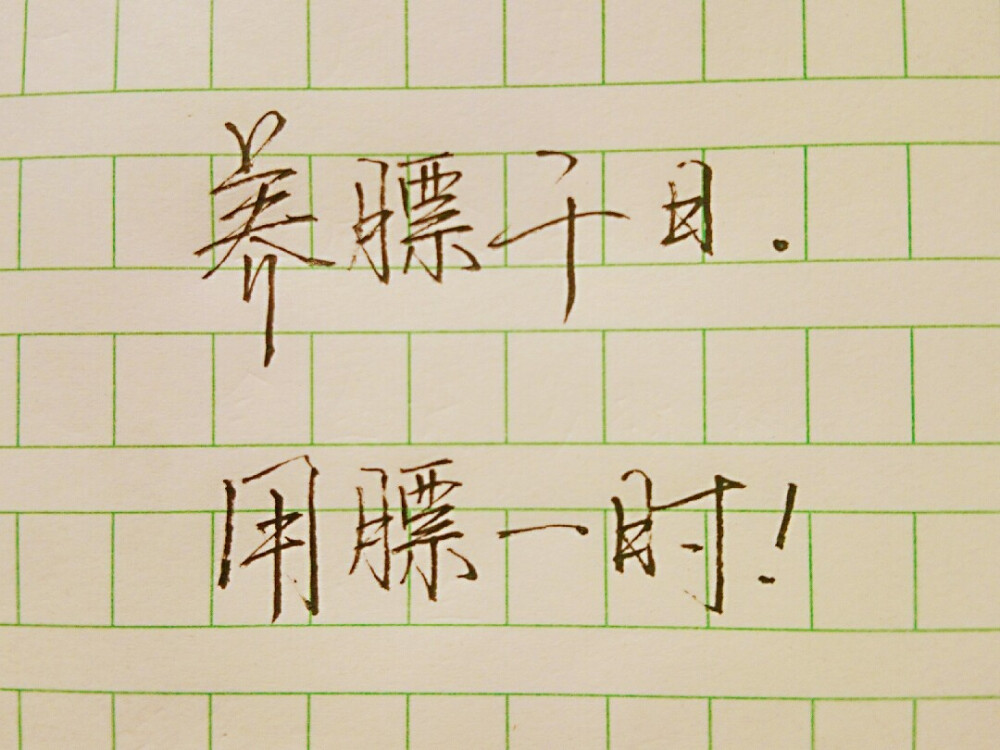 养膘千日.
用膘一时!